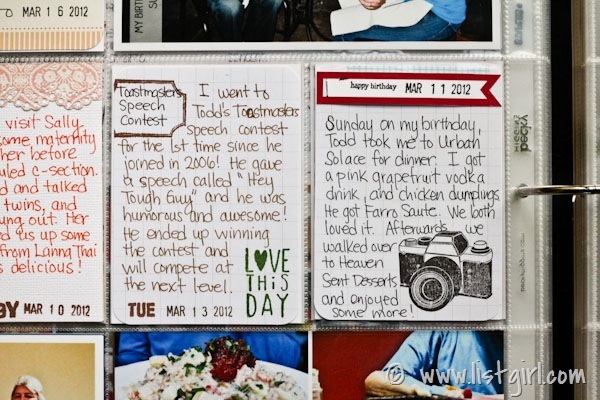 MAR 16 2012
MY BIRTH
visit Sally
some maternity
her before
uled c-section.
d and talked
twins, and
ung out. Her
ed us up some
from Lanna Thai
s delicious!
BY MAR 10 2012
Toastmasters
Speech
Contest
I went to
Todd's Toastmasters
speech contest
for the 1st time since he
joined in 2006! He gave
a speech called "Hey
Tough Guy" and he was
humorous and awesome!
He ended up winning
the contest and
will compete at
the next level.
LOVE
THIS
DAY
TUE MAR 13 2012
happy birthday MAR 11 2012
Sunday on my birthday,
Todd took me to Urban
Solace for dinner. I got
a pink grapefruit vodka
drink, and chicken dumplings.
He got Farro Saute. We both
loved it. Afterwards, we
walked over
to Heaven
Sent Desserts
and enjoyed
some more!
© www.listgirl.com